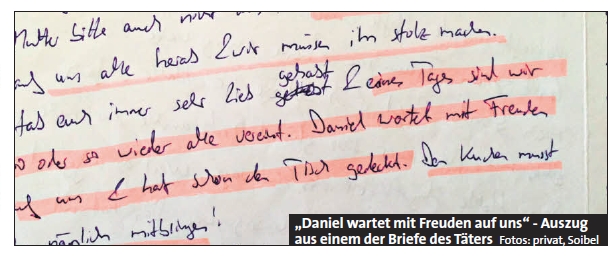 Mutter bitte auch
uns alle herab & wir müssen ihn stolz machen.
hab euch immer sehr lieb gehabt & eines Tages sind wir
so oder so wieder alle vereint. Daniel wartet mit Freuden
auf uns & hat schon den Tisch gedeckt. Den Kuchen musst
nämlich mitbringen!
„Daniel wartet mit Freuden auf uns“ - Auszug
aus einem der Briefe des Täters Fotos: privat, Soibel